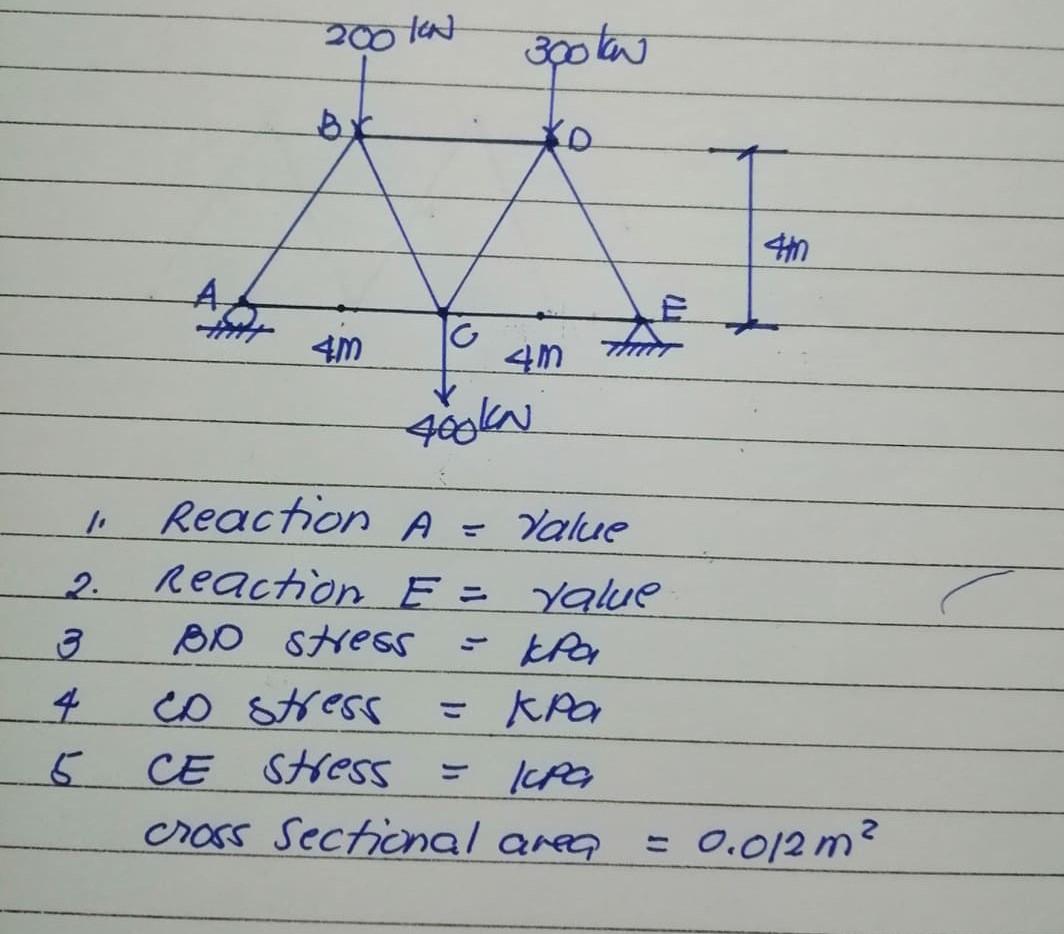 200 kN
300 kN
B
D
4m
A
E
C
4m
4m
400 kN
1. Reaction A = Value
2. Reaction E = value
3 BD stress = kPa
4 CD stress = KPa
5 CE stress = kPa
cross sectional area = 0.012 m²